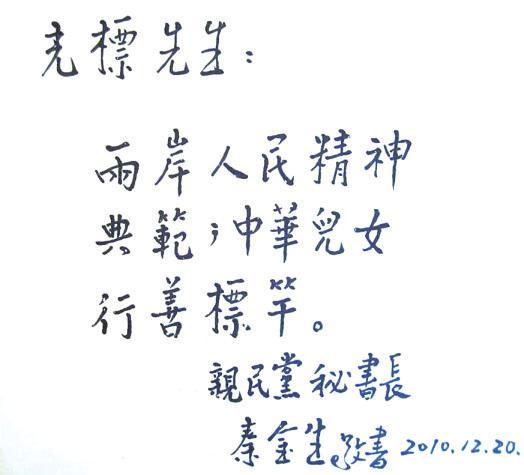 光標先生：
兩岸人民精神
典範；中華兒女
行善標竿。
親民黨秘書長
秦金生敬書 2010.12.20.